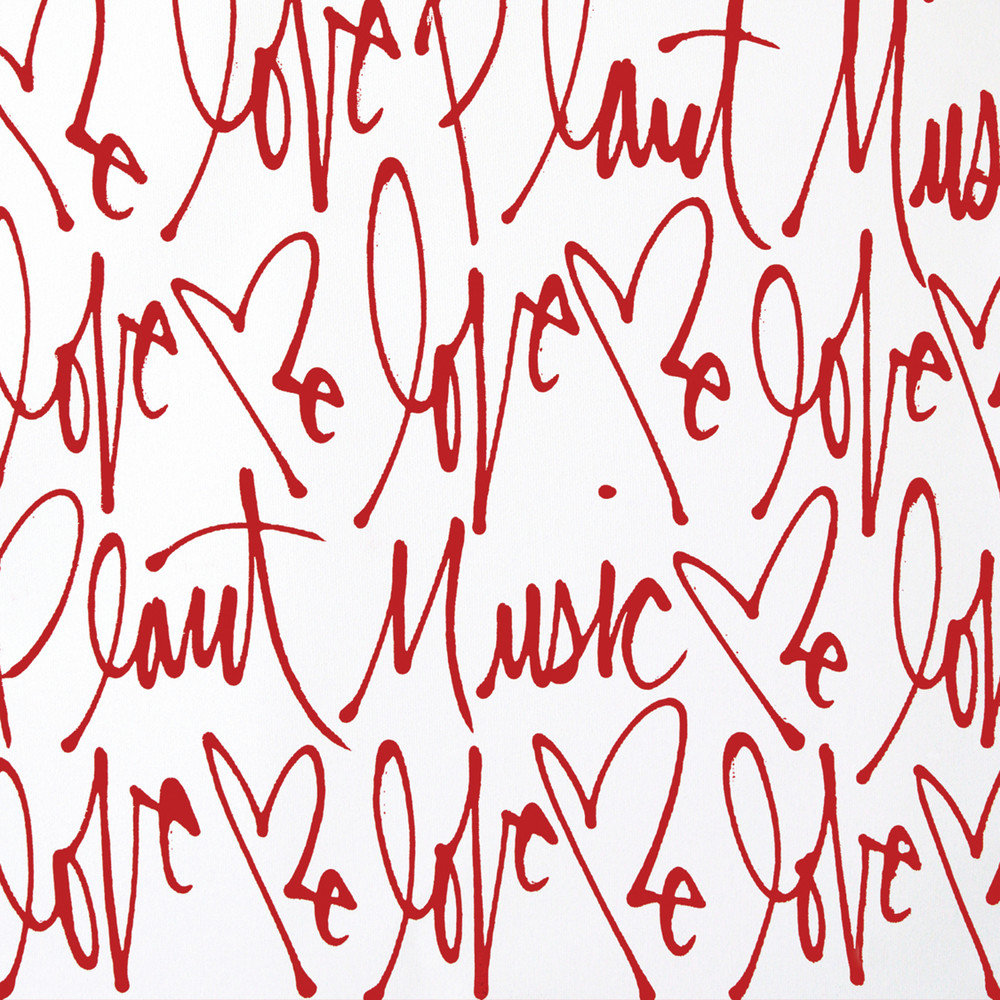 Me love Plant Mus
love Me love Me love
Plant Music Me lov
love Me love Me love